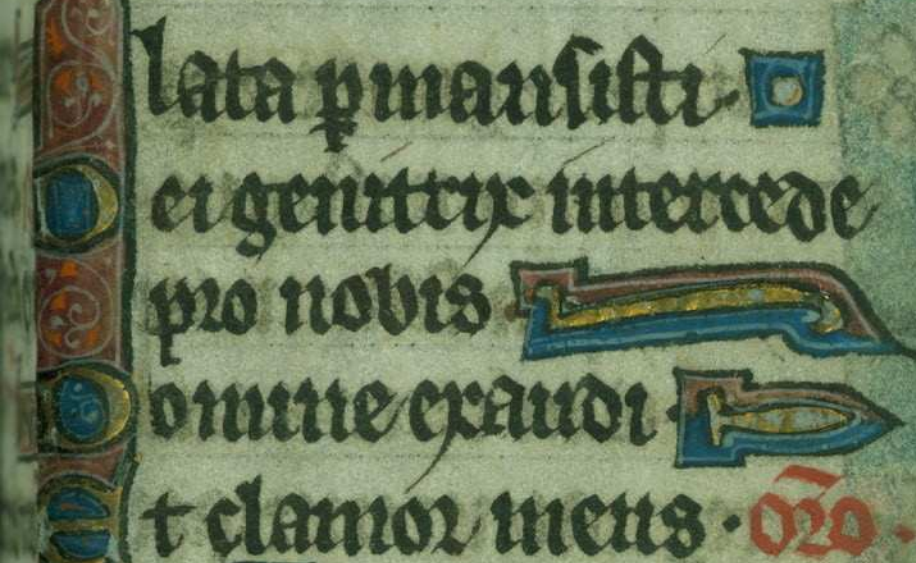 lata ꝑmansisti
Dei genitrix intercede
pro nobis
Domine exaudi
Et clamor meus · oro̅ ·